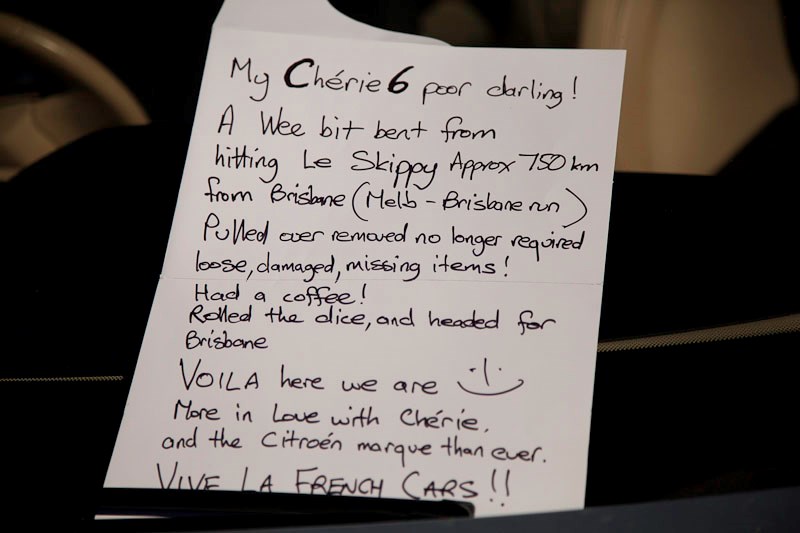 My Chérie 6 poor darling!
A Wee bit bent from
hitting Le Skippy Approx 750 km
from Brisbane (Melb - Brisbane run)
Pulled over removed no longer required
loose, damaged, missing items!
Had a coffee!
Rolled the dice, and headed for
Brisbane
VOILA here we are
More in Love with Chérie,
and the Citroén marque than ever.
VIVE LA FRENCH CARS!!